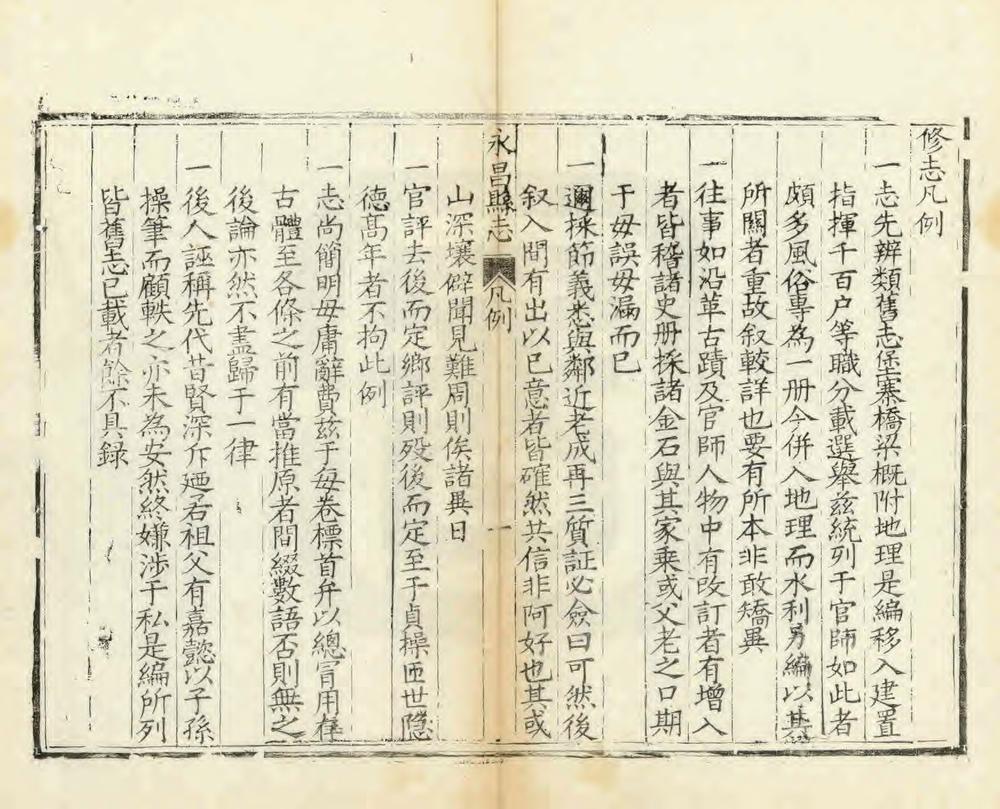 修志凡例
一志先辨類舊志堡寨橋梁概附地理是編移入建置
指揮千百户等職分載選舉兹統列于官師如此者
頗多風俗專為一册今併入地理而水利另編以其
所關者重故叙較詳也要有所本非敢矯異
一往事如沿革古蹟及官師人物中有改訂者有增入
者皆稽諸史册採諸金石與其家乘或父老之口期
于毋誤毋漏而已
一邇採節義悉與鄰近老成再三質証必僉曰可然後
叙入間有出以已意者皆確然共信非阿好也其或
永昌縣志 凡例 一
山深壤僻聞見難周則俟諸異日
一官評去後而定鄉評則殁後而定至于貞操匝世隱
德髙年者不拘此例
一志尚簡明毋庸辭費兹于每卷標首弁以總冒用存
古體至各條之前有當推原者間綴數語否則無之
後論亦然不盡歸于一律
一後人誣稱先代昔賢深斥廼若祖父有嘉懿以子孫
操筆而顧軼之亦未為安然終嫌涉于私是編所列
皆舊志已載者餘不具録